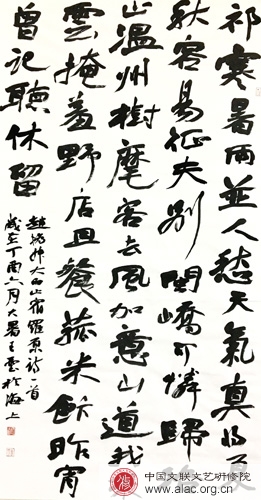 祁寒暑雨並人愁天氣真
秋容易征夫別閩嶠可憐歸
温州樹麾客去風加意山道我
雲掩羞野店且餐菰米飯昨宵
曾記聽休留
山宿羅東詩一首
歲在丁酉六月大暑王雲於海上
中国文联文艺研修院
www.alac.org.cn